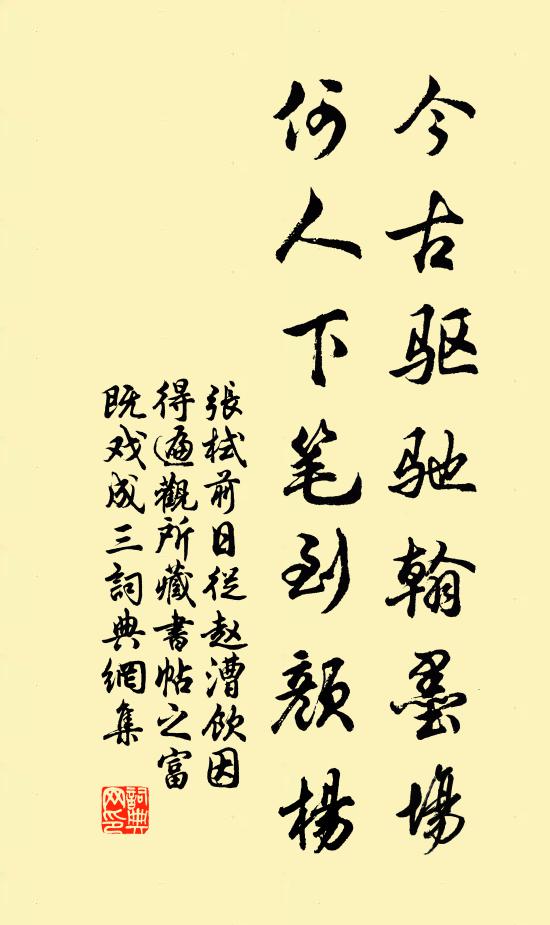 今古驱驰翰墨場
何人下笔到顏楊
張栻前日從赵漕飲因
得遍觀所藏書帖之富
既戏成三詞典網集
詞典
网印